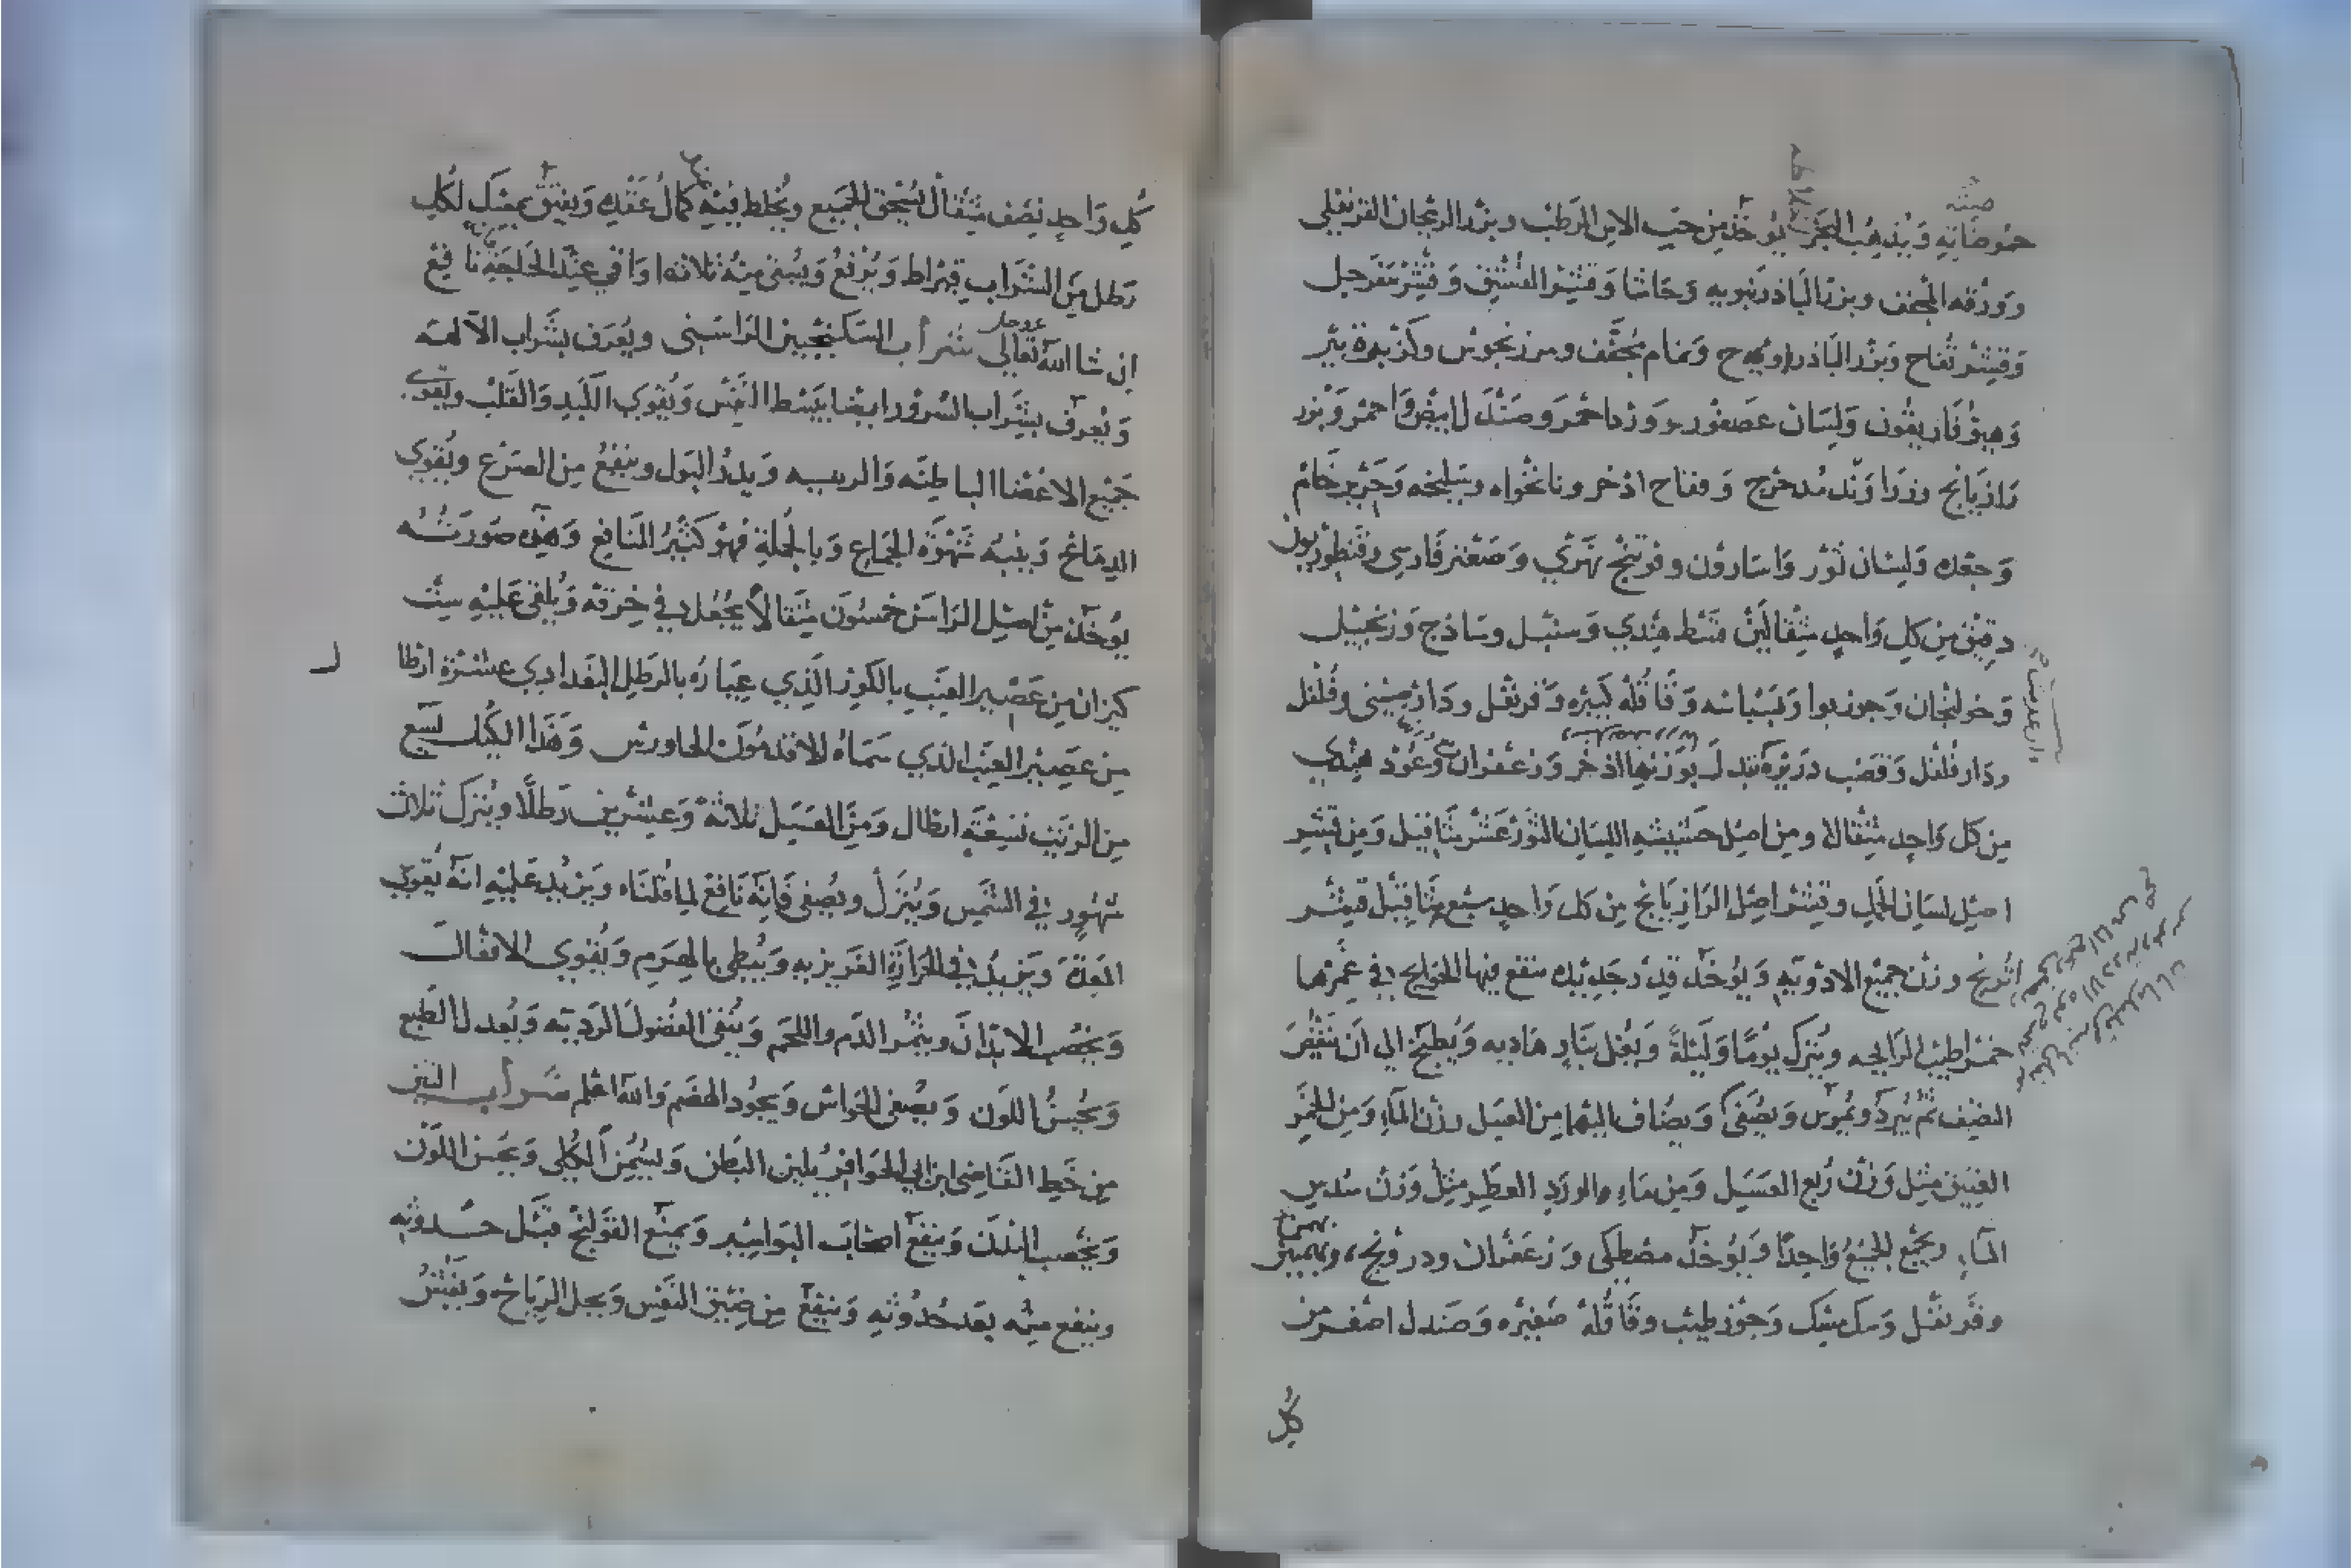 صفته
حموضاته ويذهب البخر يوخذ من حب الاس الرطب وبزر الريحان القرنفلي
وورقه المجفف وبزر الباذرنبويه وحاشا وقشر الفستق وقشر سفرجل
وقشر تفاح وبزر الباذروج ونمام مجفف ومرزنجوش وكزبرة بير
وهيوفاريقون ولسان عصفور وورد احمر وصندل ابيض واحمر وبزر
رازيانج وزراوند مدحرج وفقاح اذخر ونانخواه وسليخه وحرير خام
وجعده ولسان ثور واسارون وفوتنج نهري وصعتر فارسي وقنطوريون
دقيق من كل واحد مثقالين قسط هندي وسنبل وساذج وزنجبيل
وخولنجان وجوزبوا وبسباسه وقاقله كبيره وقرنفل ودارصيني وفلفل
ودار فلفل وقصب ذريرة بدل بوزنها اذخر وزعفران وعود هندي
من كل واحد مثقالا ومن اصل حشيشه اللسان الثور عشر مثاقيل ومن قشر
اصل لسان الحمل وقشر اصل الرازيانج من كل واحد سبع مثاقيل قشر
اترنج وزن جميع الادويه ويوخذ قدر جديده ينقع فيها الحوايج في غمرها
خمر اطيب الرايحه ويترك يوما وليلة ويغلى بنار هاديه ويطبخ الى ان تنقص
النصف ثم يبرد ويمرس ويصفى ويضاف اليها من العسل وزن الماء ومن الخمر
العتيق مثل وزن ربع العسل ومن ماء الورد العطر مثل وزن سدس
الماء ويجمع الجميع واحدا ويوخذ مصطكى وزعفران ودرونج وبهمين
وقرنفل وسك مسك وجوز طيب وقاقله صغيره وصندل اصفر من
كل
كل واحد نصف مثقال يسحق الجميع ويخلط فيه كمال عقده ويفتق بمسك لكل
رطل من الشراب قيراط ويرفع ويسقى منه ثلاثه اواقي عند الحاجة نافع
ان شا الله تعالى شراب السكنجبين الراسني ويعرف بشراب الآلهه
عز وجل
ويعرف بشراب السرور ايضا يبسط النفس ويقوي الكبد والقلب ويقوي
جميع الاعضا الباطنه ويدر البول وينفع من الصرع ويقوي
الدماغ وينبه شهوة الجماع وبالجملة فهو كثير المنافع وهذه صورته
يوخذ من اصل الراسن خمسون مثقالا يجعل في خرقه ويلقى عليه ست
كيزان من عصير العنب بالكوز الذي عياره بالرطل البغدادي عشرة ارطا
ل
من عصير العنب الذي سماه الاقدمون وهذا الكيل يسع
من الزيت تسعة ارطال ومن العسل ثلاثة وعشرين رطلا ويترك ثلاث
شهور في الشمس وينزل ويصفى فانه نافع لما قلناه ويزيد عليه انه يقوي
المعدة ويزيد في الحرارة الغريزيه ويبطي بالهرم ويقوي الافعال
ويخصب الابدان ويثمر الدم واللحم وينقي الفضول الرديه ويعدل الطبع
ويحسن اللون ويصفي الحواس ويجود الهضم والله اعلم شراب التين
من خط القاضي ابن ابي الحوافر يلين البطن ويسمن الكلى ويحسن اللون
ويخصب البدن وينفع اصحاب البواسير ويمنع القولنج قبل حدوثه
وينفع منه بعد حدوثه وينفع من ضيق النفس ويحلل الرياح ويفتش